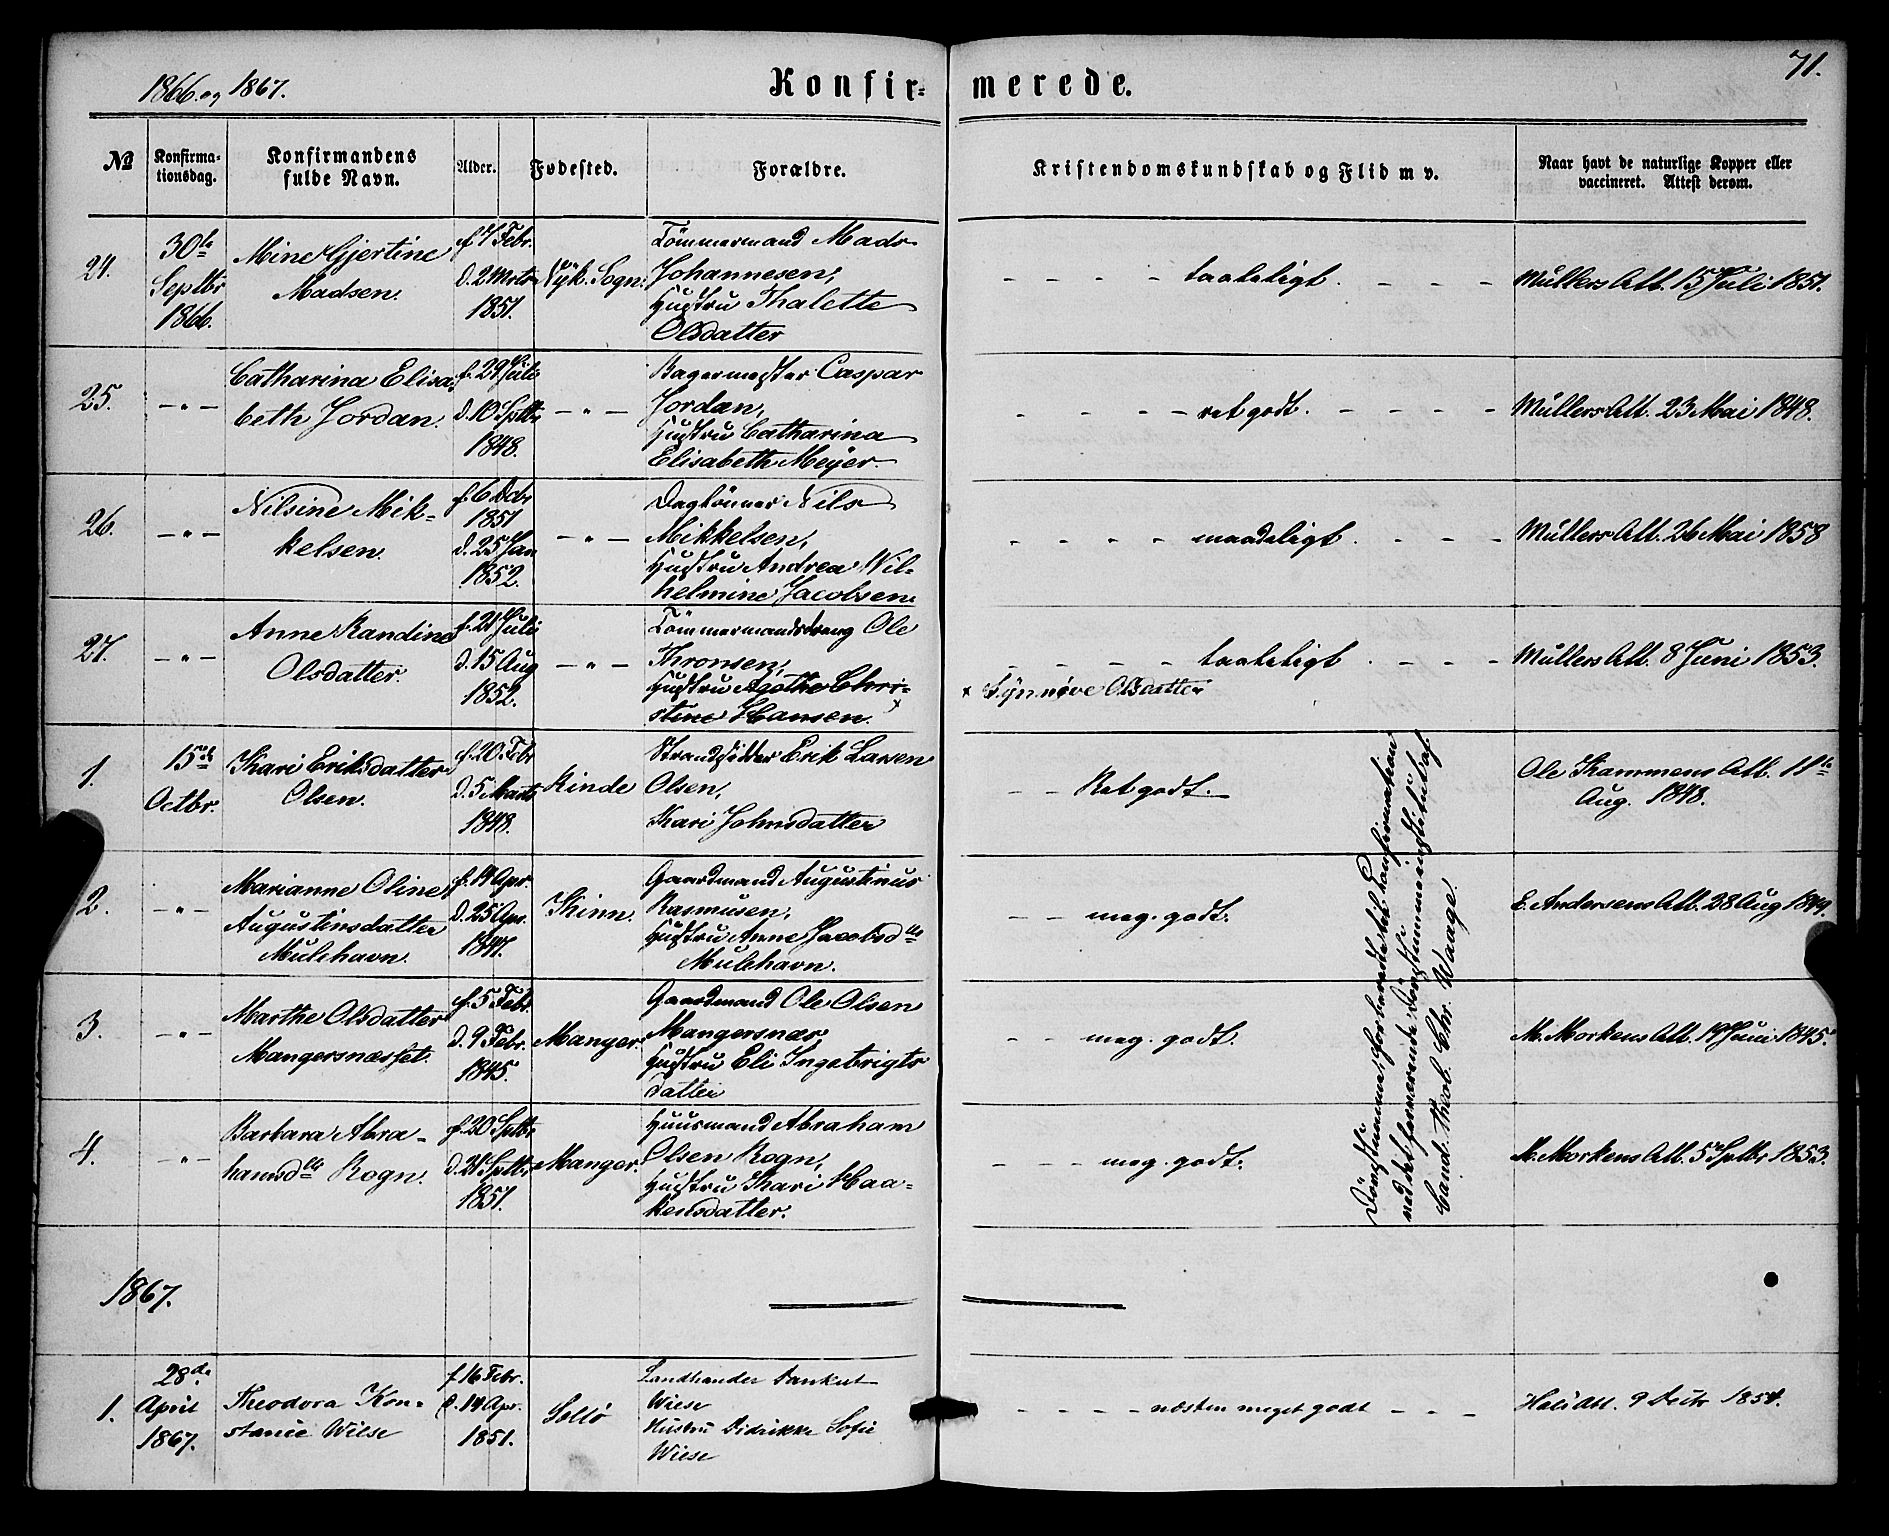 1866. og 1867.
Konfir= merede.
71.
№ Konfirma= tionsdag. Konfirmandens fulde Navn. Alder. Fødested. Forældre. Kristendomskundskab og Flid m v. Naar havt de naturlige Kopper eller vaccineret. Attest derom.
24.
30te
Septbr
1866.
Mine Gjertine
Madsen.
f. 7 Febr.
d. 2 Marts
1851.
Nyk. Sogn.
Tömmermand Mads
Johannesen,
Hustru Thalette
Olsdatter
– – – – taaleligt. – – –
Müllers Att. 15 Juli 1851.
25.
– „ –
Catharina Elisa
beth Jordan.
f. 29 Juli
d. 10 Sptbr
1848.
– „ –
Bagermester Caspar
Jordan,
Hustru Catharina
Elisabeth Meyer.
– – – – ret godt. – – – –
Müllers Att. 23 Mai 1848.
26.
– „ –
Nilsine Mik=
kelsen.
f. 6 Dcbr
1851
d. 25 Jan
1852.
– „ –
Daglönner Nils
Mikkelsen,
Hustru Andrea Wil=
helmine Jacobsen.
– – – – maadeligt. – – –
Müllers Att. 26 Mai 1858
27.
– „ –
Anne Randine
Olsdatter.
f. 21 Juli
d. 15 Aug
1852.
– „ –
Tömmermandsdreng Ole
Thronsen,
Hustru Agathe Chri=
stine Hansen. ×
– – – – taaleligt. – – –
× Synnøve Olsdatter
Müllers Att. 8 Juni 1853.
1.
15de
Octbr.
Kari Eriksdatter
Olsen.
f. 20. Febr
d. 5 Marts
1848.
Rinde
Strandsidder Erik Larsen
Olsen,
Kari Johnsdatter
– – Ret godt. –
Ole Kammens Att. 18te
Aug. 1848.
2.
– „ –
Marianne Oline
Augustinsdatter
Mulehavn.
f. 14 Apr.
d. 25 Apr.
1847.
Kinn.
Gaardmand Augustinus
Rasmusen,
Hustru Anne Jacobsdtr
Mulehavn.
– – meg. godt.
E. Andersens Att. 28 Aug 1849.
3.
– „ –
Marthe Olsdatter
Mangersnæsset.
f. 5 Febr.
d. 9 Febr.
1845.
Manger.
Gaardmand Ole Olsen
Mangersnæs,
Hustru Eli Ingebrigts
datter
– – meg. godt.
M. Morkens Att. 19 Juni 1845.
4.
– „ –
Barbara Abra –
hamsdtr Rogn.
f. 20 Sptbr
d. 21 Sptbr
1851.
Manger.
Huusmand Abraham
Olsen Rogn,
Hustru Kari Haa=
kensdatter.
– – – meg. godt.
M. Morkens Att. 5 Sptbr 1853.
Døvstumme, forberedte til Konfirmation
ved det herværende Døvstummeinstitut af
Cand. theol. Chr. Waage.
1867.
1.
28de
April
1867.
Theodora Kon=
stance Wiese
f. 16 Febr.
d. 14 Apr.
1851.
Sollø
Landhandler Dankert
Wiese
Hustru Didrikke Sofie
Wiese
– – – – næsten meget godt – – –
9 Decbr 1854.